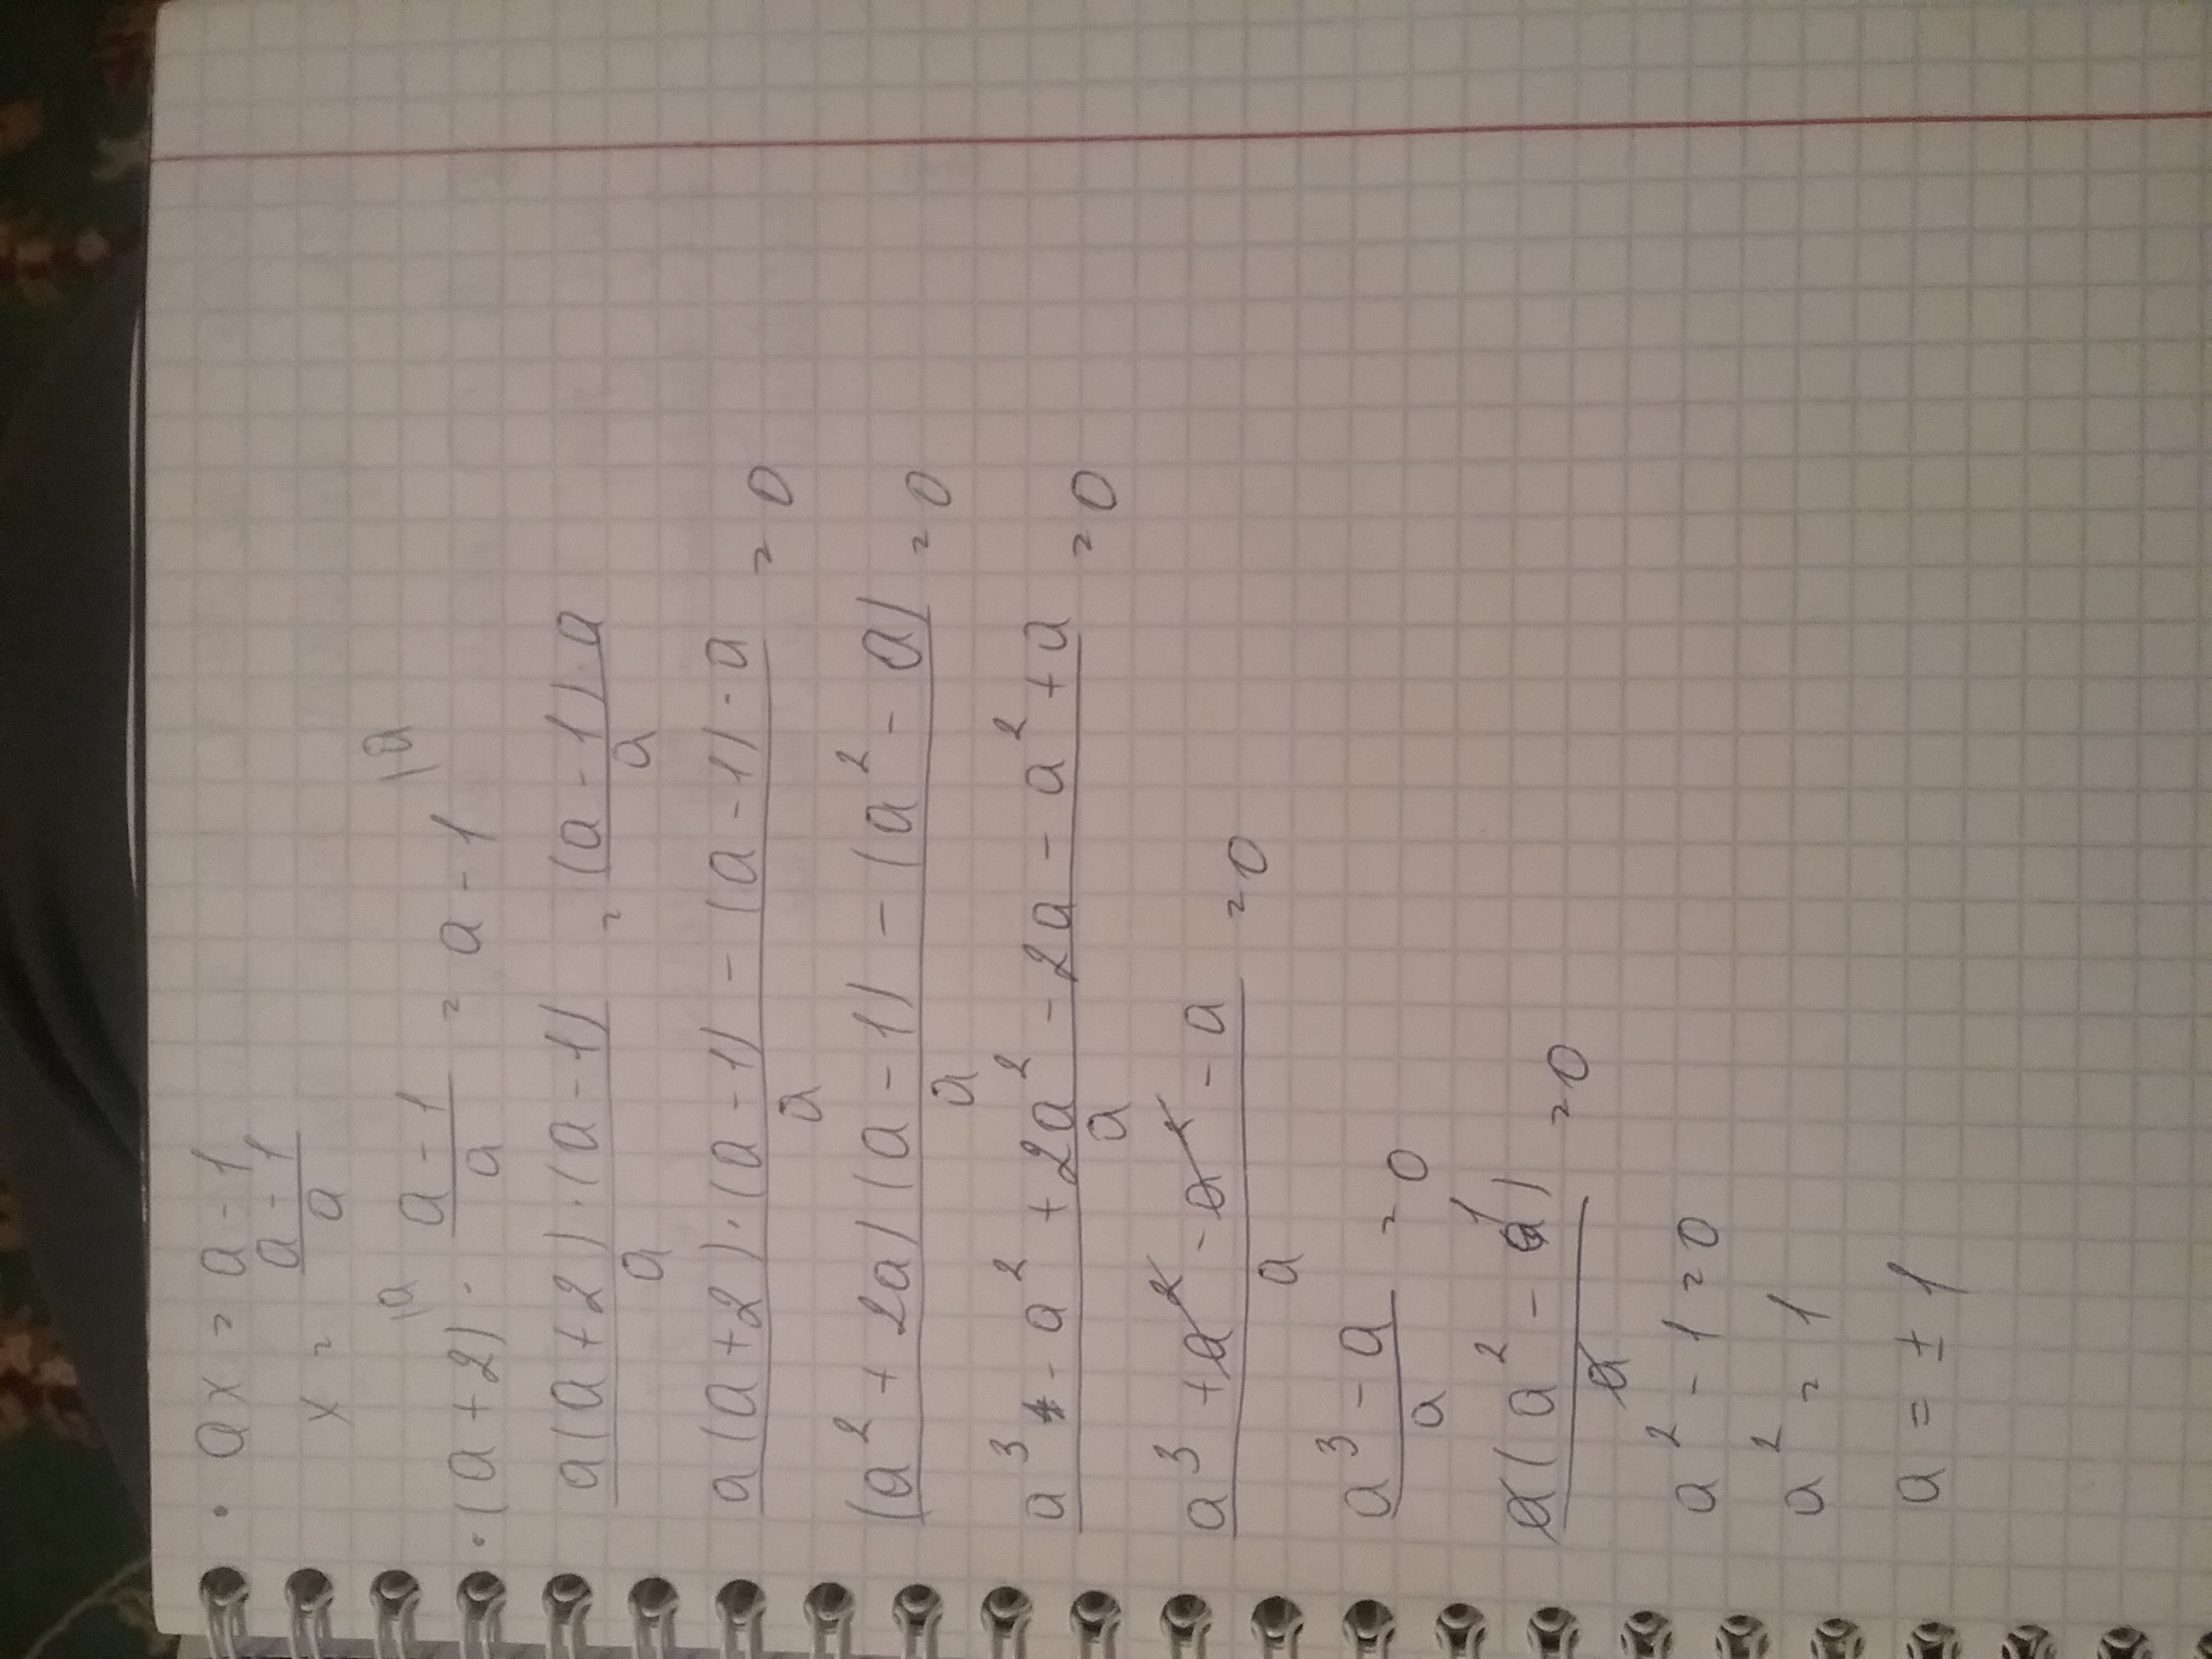 • ax = a - 1
x = (a - 1)/a
• (a + 2)^{\a} · (a - 1)/a = a - 1^{\a}
(a(a + 2) · (a - 1))/a = ((a - 1) · a)/a
(a(a + 2) · (a - 1) - (a - 1) · a)/a = 0
((a² + 2a)(a - 1) - (a² - a))/a = 0
(a³ - a² + 2a² - 2a - a² + a)/a = 0
(a³ + a² - a² - a)/a = 0
(a³ - a)/a = 0
(a(a² - 1))/a = 0
a² - 1 = 0
a² = 1
a = ± 1